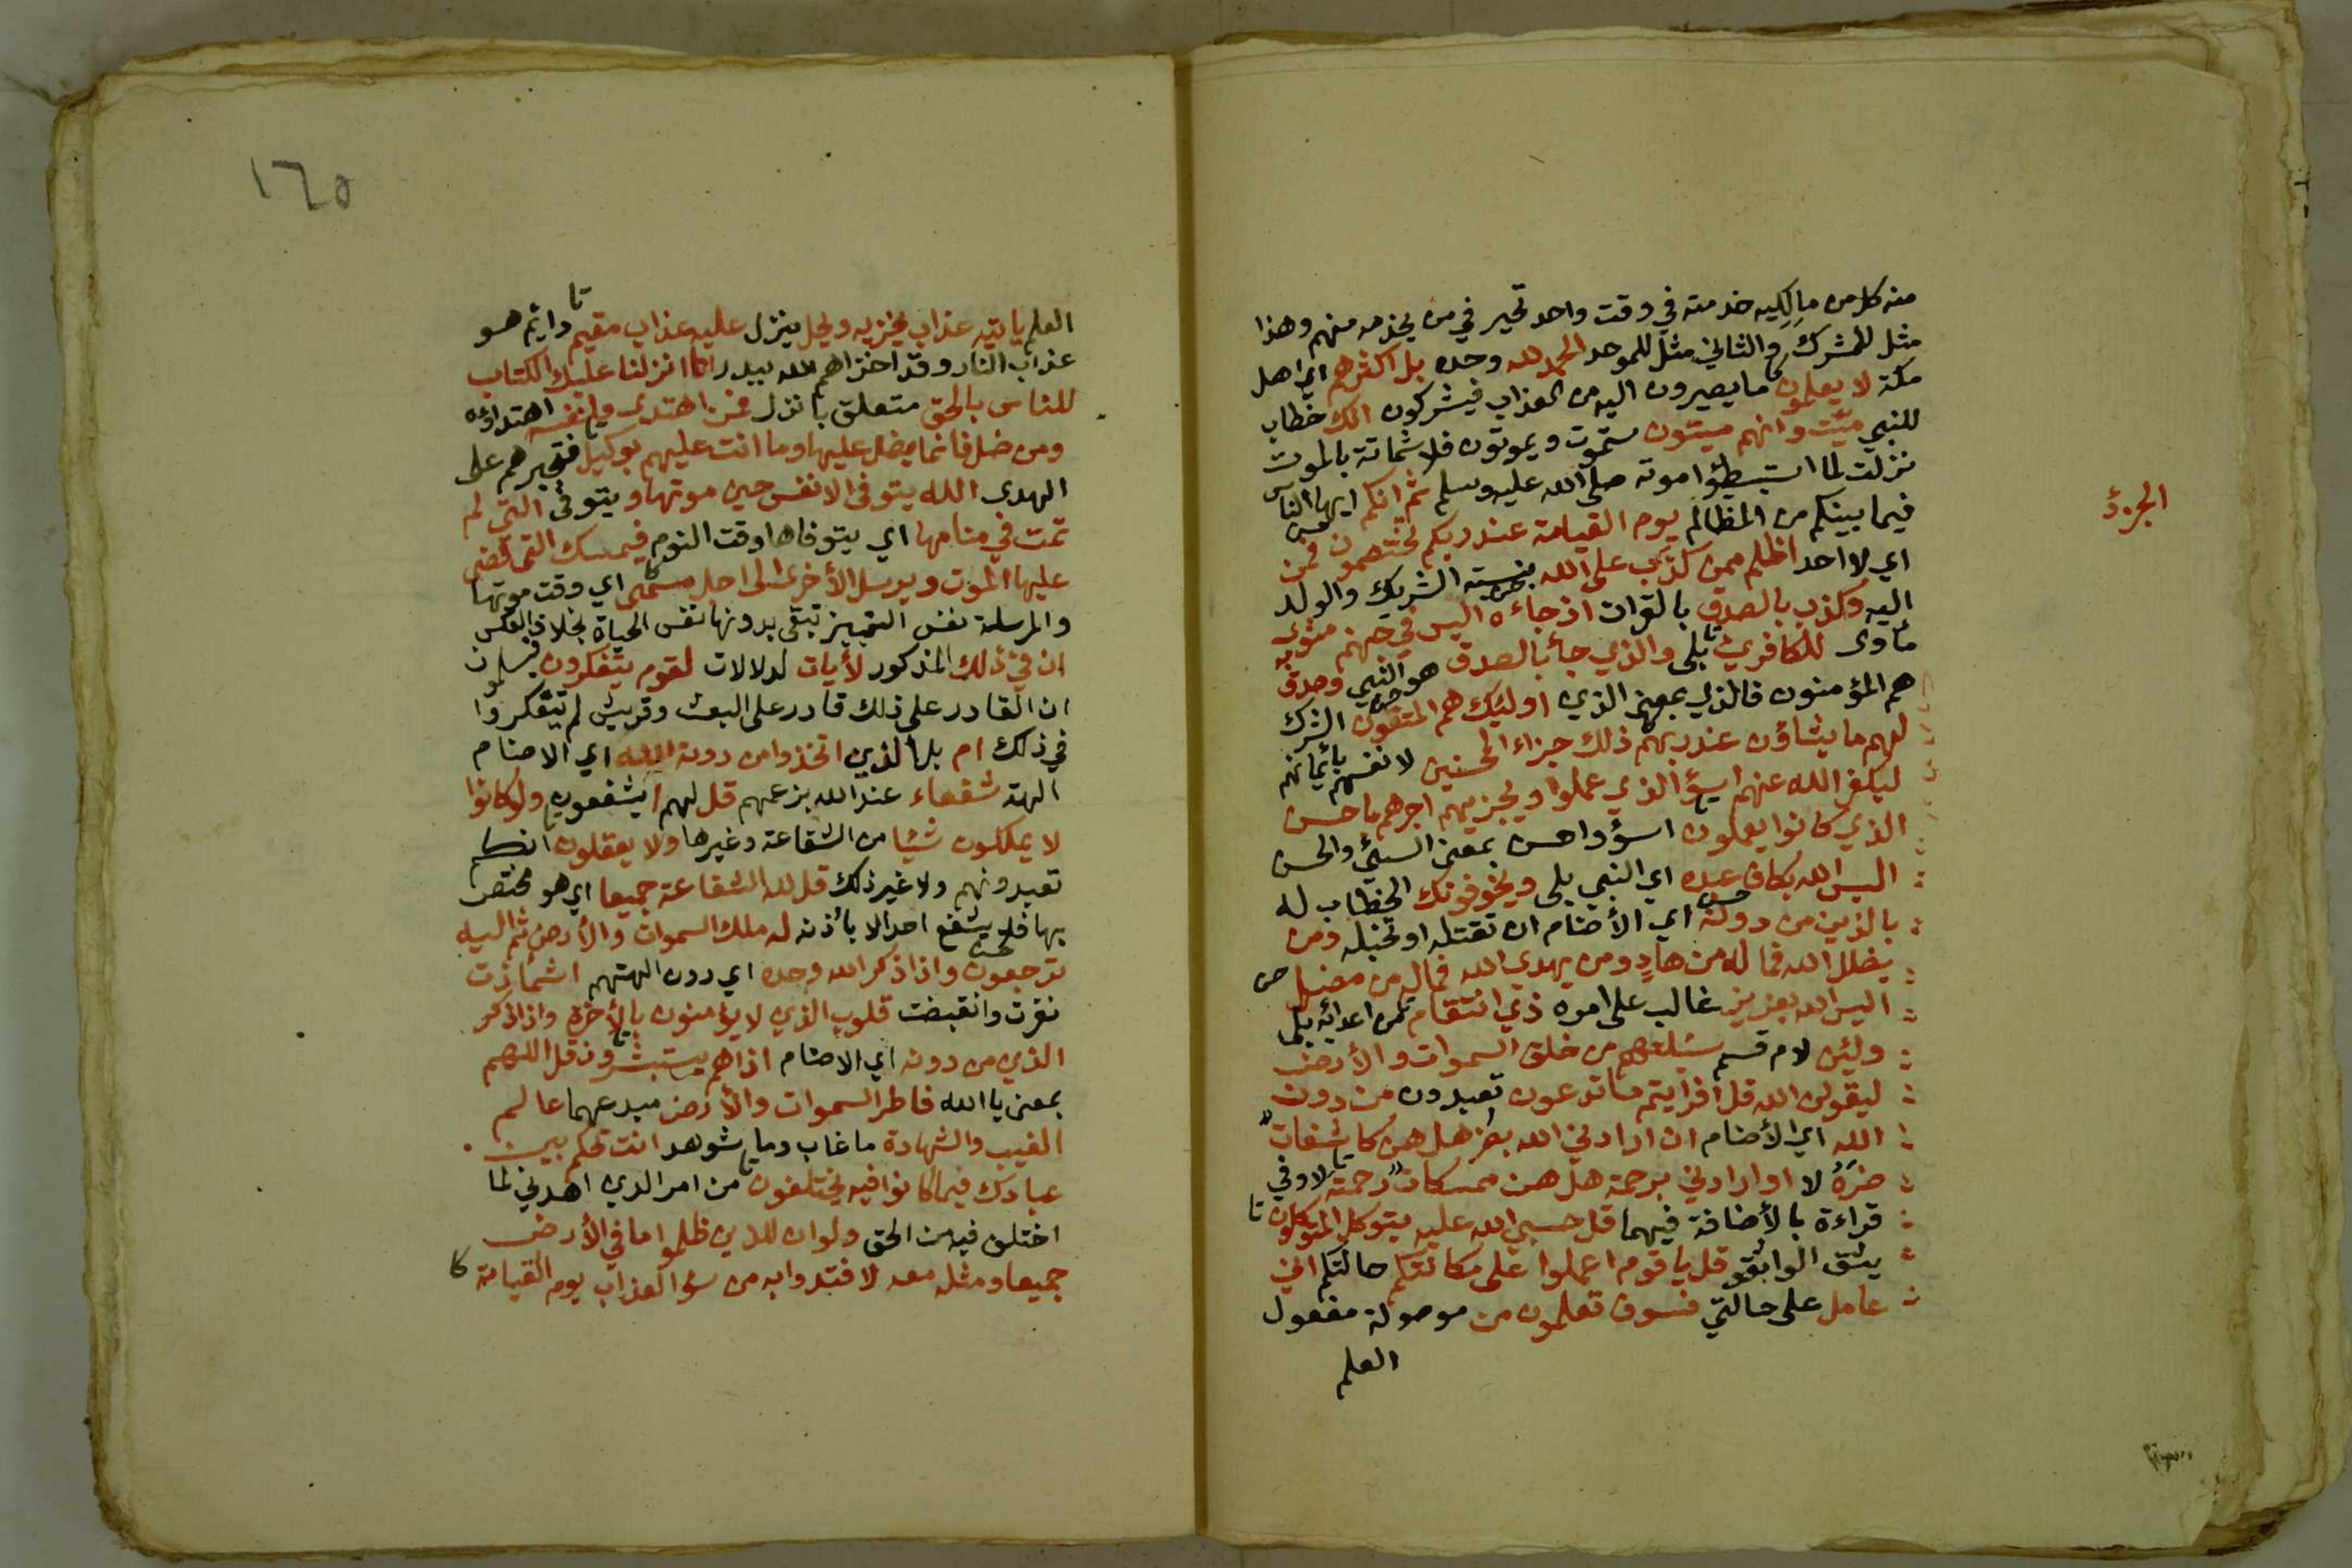 منه كل من مالكيه خدمته في وقت واحد تحير في من يخدمه منهم وهذا
مثل للمشرك والثاني مثل للموحد الحمد لله وحده بل اكثرهم اي اهل
مكة لا يعلمون ما يصيرون اليه من العذاب فيشركون انك خطاب
للنبي ميّت وانهم ميتون ستموت ويموتون فلا شماتة بالموت
نزلت لما استبطؤا موته صلى الله عليه وسلم ثم انكم ايها الناس
فيما بينكم من المظالم يوم القيامة عند ربكم تختصمون فمن
الجزؤ
اي لا احد اظلم ممن كذب على الله بنسبته الشريك والولد
اليه وكذب بالصدق بالقران اذ جاءه اليس في جهنم مثوى
مأوى للكافرين بلى والذي جأ بالصدق هو النبي وصدق به
هم المؤمنون فالذي بمعنى الذي اوليك هم المتقون الشرك
لهم ما يشاؤن عند ربهم ذلك جزاء المحسنين لانفسهم بأيمانهم
ليكفر الله عنهم اسؤ الذي عملوا ويجزيهم اجرهم باحسن
الذي كانوا يعملون اسؤ واحسن بمعنى السيئ والحسن
اليس الله بكاف عبده اي النبي بلى ويخوفونك الخطاب له
بالذين من دونه اي الأصنام ان تقتله او تخبله ومن
يضلل الله فما له من هادٍ ومن يهدي الله فماله من مضل
اليس الله بعزيز غالب على امره ذي انتقام من اعدائه بلى
ولئن لام قسم سئلتهم من خلق السموات والأرض
ليقولن الله قل افرايتم ما تدعون تعبدون من دون
الله اي الأصنام ان ارادني الله بضر هل هن كاشفات
ضرّهُ لا او ارادني برحمة هل هن ممسكات رحمته لا وفي
قراءة بالأضافة فيهما قل حسبي الله عليه يتوكل المتوكلون
يثق الواثقو قل يا قوم اعملوا على مكانتكم حالتكم اني
عامل على حالتي فسوف تعلمون من موصولة مفعول
العلم
١٦٥
العلم يأتيه عذاب يخزيه ويحل ينزل عليه عذاب مقيم دايم هو
عذاب النار وقد اخزاهم الله ببدر انا انزلنا عليك الكتاب
للناس بالحق متعلق بانزل فمن اهتدى فلنفسه اهتداؤه
ومن ضل فانما يضل عليها وما انت عليهم بوكيل فتجبرهم على
الهدى الله يتوفى الانفس حين موتها ويتوفى التي لم
تمت في منامها اي يتوفاها وقت النوم فيمسك التي قضى
عليها الموت ويرسل الأخرى الى اجل مسمى اي وقت موتها
والمرسلة نفس التمييز تبقى بدونها نفس الحياة بخلاف العكس
ان في ذلك المذكور لأيات لدلالات لقوم يتفكرون فيعلمون
ان القادر على ذلك قادر على البعث وقريش لم يتفكروا
في ذلك ام بل الذين اتخذوا من دون الله اي الاصنام
الهة شفعاء عند الله بزعمهم قل لهم ايشفعون ولو كانوا
لا يملكون شيئا من الشفاعة وغيرها ولا يعقلون انكم
تعبدونهم ولا غير ذلك قل لله الشفاعة جميعا اي هو مختص
بها فلا يشفع احد الا بأذنه له ملك السموات والأرض ثم اليه
ترجعون واذا ذكر الله وحده اي دون الهتهم اشمأزت
نفرت وانقبضت قلوب الذي لا يؤمنون بالأخرة واذا ذكر
الذي من دونه اي الاصنام اذا هم يستبشرون قل اللهم
بمعنى يا الله فاطر السموات والأرض مبدعهما عالم
الغيب والشهادة ما غاب وما شوهد انت تحكم بين
عبادك فيما كانوا فيه يختلفون من امر الدين اهدني لما
اختلف فيه من الحق ولو ان للذين ظلموا ما في الأرض
جميعا ومثله معه لافتدوا به من سؤ العذاب يوم القيامة